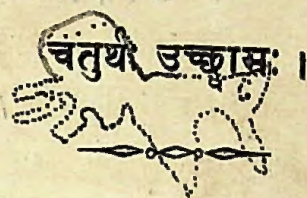 चतुर्थ उच्छ्वासः ।